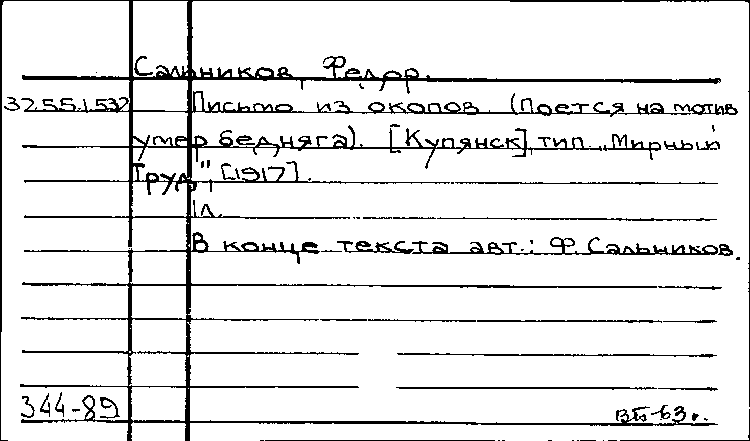 Сальников, Федор.
37.55.1.532 Письмо из окопов (Поется на мотив
умер бедняга). [Купянск], тип. „Мирный
Труд", [1917].
1л.
В конце текста авт.: Ф. Сальников.
344-89 ВБ-63г.